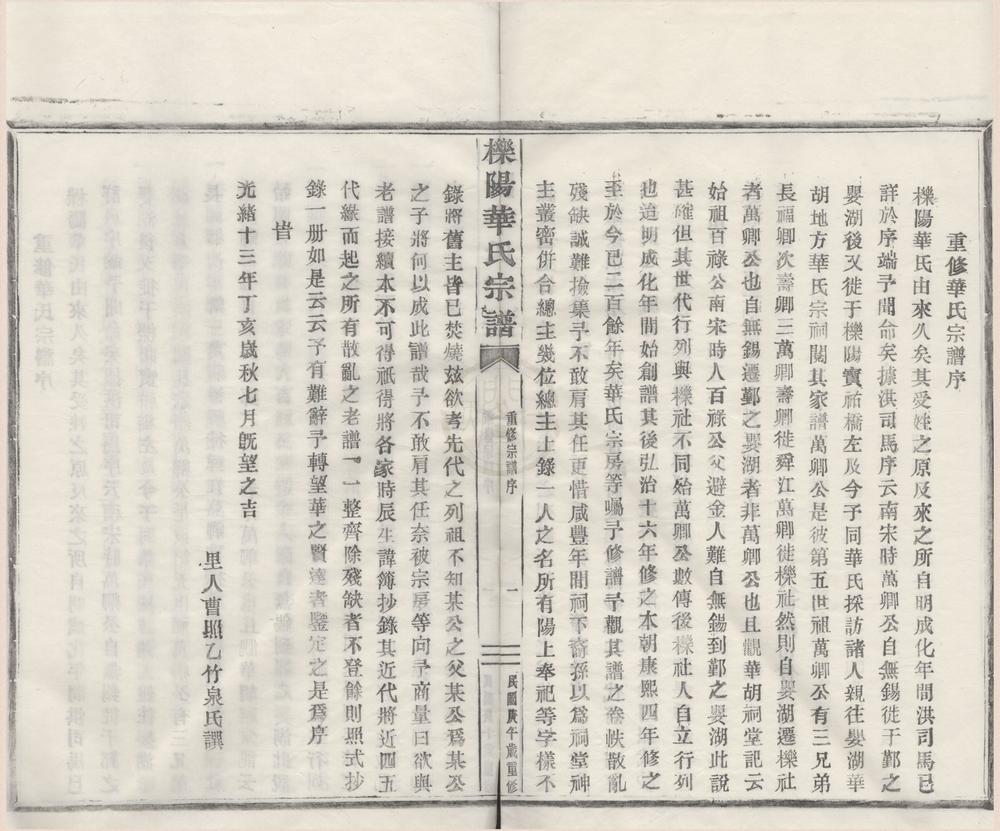 重修華氏宗譜序
櫟陽華氏由來久矣其受姓之原及來之所自明成化年間洪司馬已
詳於序端予聞命矣據洪司馬序云南宋時萬卿公自無錫徙干鄞之
嬰湖後又徙于櫟陽實祐橋左及今予同華氏採訪諸人親往嬰湖華
胡地方華氏宗祠閱其家譜萬卿公是彼第五世祖萬卿公有三兄弟
長福卿次壽卿三萬卿壽卿徙舜江萬卿徙櫟社然則自嬰湖遷櫟社
者萬卿公也自無錫遷鄞之嬰湖者非萬卿公也且觀華胡祠堂記云
始祖百祿公南宋時人百祿公父避金人難自無錫到鄞之嬰湖此說
甚確但其世代行列與櫟社不同殆萬卿公數傳後櫟社人自立行列
也迨明成化年間始創譜其後弘治十六年修之本朝康熙四年修之
至於今已二百餘年矣華氏宗房等囑予修譜予觀其譜之卷帙散亂
殘缺誠難撿集予不敢肩其任更惜咸豐年間祠下裔孫以爲祠堂神
主叢密併合總主幾位總主上錄一人之名所有陽上奉祀等字樣不
櫟陽華氏宗譜
重修宗譜序
一
民國庚午歲重修
錄將舊主皆已焚燒玆欲考先代之列祖不知某公之父某公爲某公
之子將何以成此譜哉予不敢肩其任奈被宗房等向予商量曰欲與
老譜接續本不可得祇得將各家時辰生諱簿抄錄其近代將近四五
代綠而起之所有散亂之老譜一一整齊除殘缺者不登餘則照式抄
錄一册如是云云予有難辭予轉望華之賢達者鑒定之是爲序
旹
光緒十三年丁亥歲秋七月旣望之吉
里人曹照乙竹泉氏譔